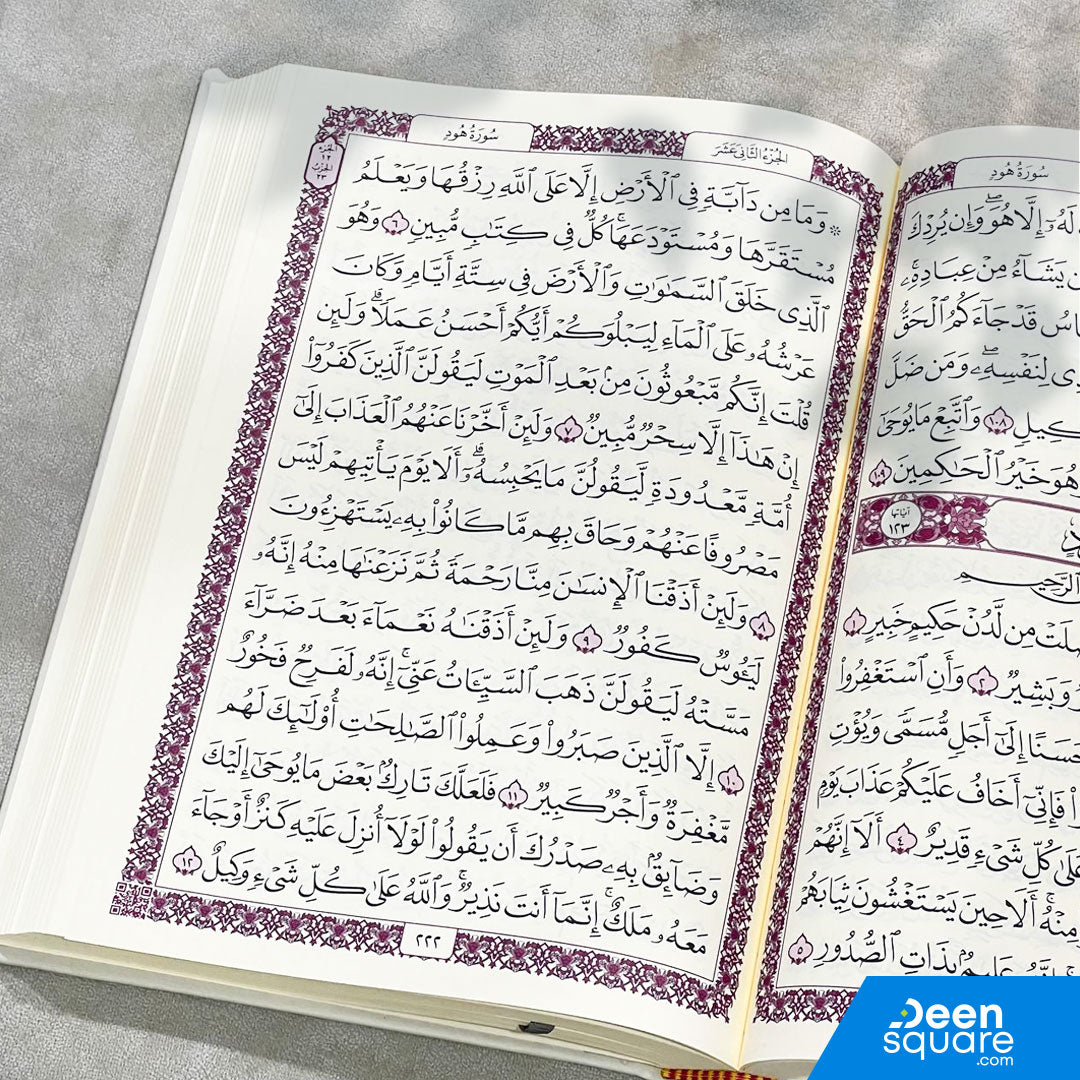 سُورَةُ هُودٍ
لَهُۥٓ إِلَّا هُوَۖ وَإِن يُرِدْكَ
يَشَآءُ مِنْ عِبَادِهِۦۚ
قَدْ جَآءَكُمُ ٱلْحَقُّ
لِنَفْسِهِۦۖ وَمَن ضَلَّ
١٠٨ وَٱتَّبِعْ مَا يُوحَىٰٓ
وَهُوَ خَيْرُ ٱلْحَٰكِمِينَ ١٠٩
آيَاتُهَا
١٢٣
ٱلرَّحِيمِ
مِن لَّدُنْ حَكِيمٍ خَبِيرٍ ١
وَبَشِيرٌ ٢ وَأَنِ ٱسْتَغْفِرُوا۟
حَسَنًا إِلَىٰٓ أَجَلٍ مُّسَمًّى وَيُؤْتِ
فَإِنِّىٓ أَخَافُ عَلَيْكُمْ عَذَابَ يَوْمٍ
عَلَىٰ كُلِّ شَىْءٍ قَدِيرٌ ٤ أَلَآ إِنَّهُمْ
مِنْهُۚ أَلَا حِينَ يَسْتَغْشُونَ ثِيَابَهُمْ
عَلِيمٌۢ بِذَاتِ ٱلصُّدُورِ ٥
الجُزْءُ الثَّانِي عَشَرَ
سُورَةُ هُودٍ
الجزء
١٢
الحزب
٢٣
۞ وَمَا مِن دَآبَّةٍ فِى ٱلْأَرْضِ إِلَّا عَلَى ٱللَّهِ رِزْقُهَا وَيَعْلَمُ
مُسْتَقَرَّهَا وَمُسْتَوْدَعَهَاۚ كُلٌّ فِى كِتَٰبٍ مُّبِينٍ ٦ وَهُوَ
ٱلَّذِى خَلَقَ ٱلسَّمَٰوَٰتِ وَٱلْأَرْضَ فِى سِتَّةِ أَيَّامٍ وَكَانَ
عَرْشُهُۥ عَلَى ٱلْمَآءِ لِيَبْلُوَكُمْ أَيُّكُمْ أَحْسَنُ عَمَلًاۗ وَلَئِن
قُلْتَ إِنَّكُم مَّبْعُوثُونَ مِنۢ بَعْدِ ٱلْمَوْتِ لَيَقُولَنَّ ٱلَّذِينَ كَفَرُوٓا۟
إِنْ هَٰذَآ إِلَّا سِحْرٌ مُّبِينٌ ٧ وَلَئِنْ أَخَّرْنَا عَنْهُمُ ٱلْعَذَابَ إِلَىٰٓ
أُمَّةٍ مَّعْدُودَةٍ لَّيَقُولُنَّ مَا يَحْبِسُهُۥٓۗ أَلَا يَوْمَ يَأْتِيهِمْ لَيْسَ
مَصْرُوفًا عَنْهُمْ وَحَاقَ بِهِم مَّا كَانُوا۟ بِهِۦ يَسْتَهْزِءُونَ
٨ وَلَئِنْ أَذَقْنَا ٱلْإِنسَٰنَ مِنَّا رَحْمَةً ثُمَّ نَزَعْنَٰهَا مِنْهُ إِنَّهُۥ
لَيَـُٔوسٌ كَفُورٌ ٩ وَلَئِنْ أَذَقْنَٰهُ نَعْمَآءَ بَعْدَ ضَرَّآءَ
مَسَّتْهُ لَيَقُولَنَّ ذَهَبَ ٱلسَّيِّـَٔاتُ عَنِّىٓۚ إِنَّهُۥ لَفَرِحٌ فَخُورٌ
١٠ إِلَّا ٱلَّذِينَ صَبَرُوا۟ وَعَمِلُوا۟ ٱلصَّٰلِحَٰتِ أُو۟لَٰٓئِكَ لَهُم
مَّغْفِرَةٌ وَأَجْرٌ كَبِيرٌ ١١ فَلَعَلَّكَ تَارِكٌۢ بَعْضَ مَا يُوحَىٰٓ إِلَيْكَ
وَضَآئِقٌۢ بِهِۦ صَدْرُكَ أَن يَقُولُوا۟ لَوْلَآ أُنزِلَ عَلَيْهِ كَنزٌ أَوْ جَآءَ
مَعَهُۥ مَلَكٌۚ إِنَّمَآ أَنتَ نَذِيرٌۚ وَٱللَّهُ عَلَىٰ كُلِّ شَىْءٍ وَكِيلٌ ١٢
٢٢٢
Deen
square
.com